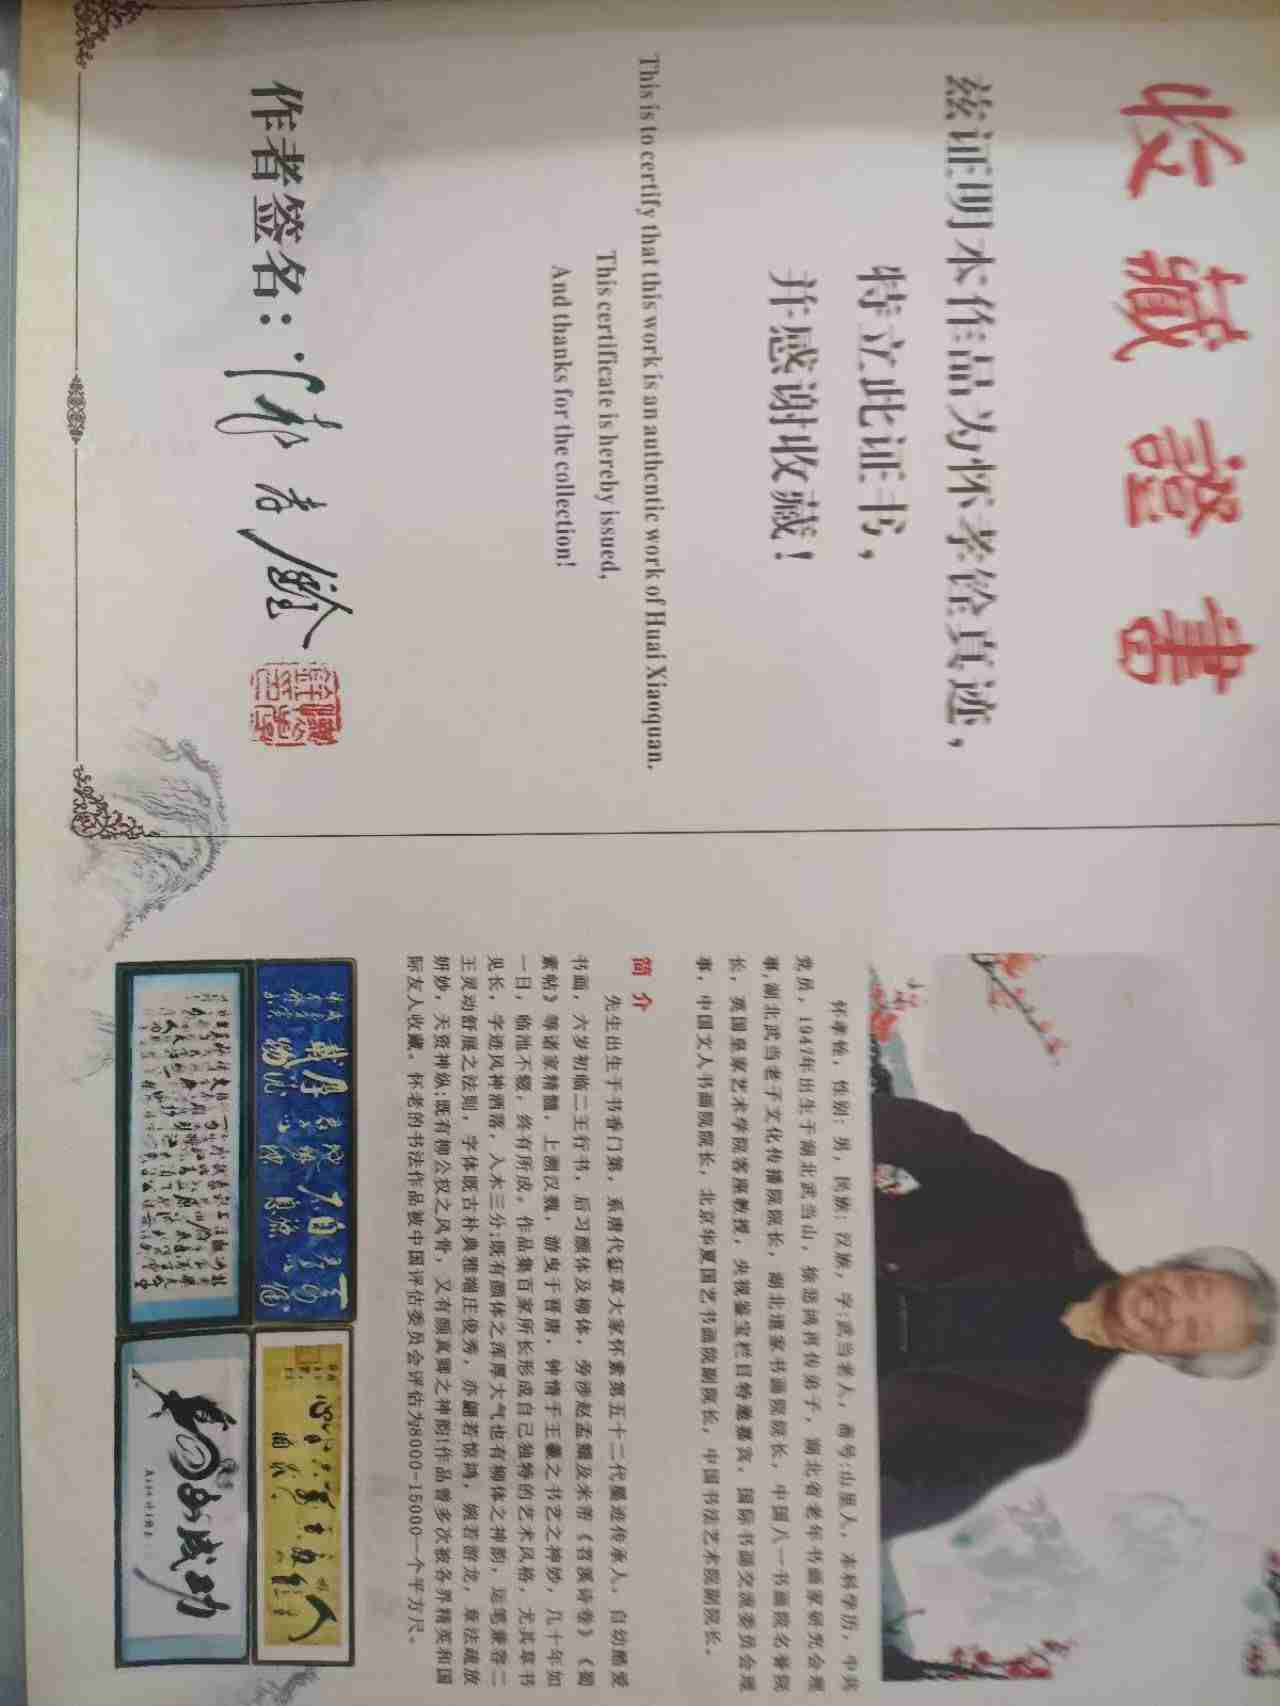 收藏證書
兹证明本作品为怀孝铨真迹，
特立此证书，
并感谢收藏！
This is to certify that this work is an authentic work of Huai Xiaoquan.
This certificate is hereby issued,
And thanks for the collection!
作者签名：怀孝铨
怀孝铨，性别：男，民族：汉族，字:武当老人，斋号:山里人，本科学历，中共
党员，1947年出生于湖北武当山，徐悲鸿再传弟子，湖北省老年书画家研究会理
事,湖北武当老子文化传播院院长，湖北道家书画院院长，中国八一书画院名誉院
长，英国皇家艺术学院客座教授，央视鉴宝栏目特邀嘉宾，国际书画交流委员会理
事，中国文人书画院院长，北京华夏国艺书画院副院长，中国书法艺术院副院长。
简介
先生出生于书香门第，系唐代狂草大家怀素第五十二代墨迹传承人。自幼酷爱
书画，六岁初临二王行书，后习颜体及柳体，旁涉赵孟頫及米芾《苕溪诗卷》《蜀
素帖》等诸家精髓，上溯汉魏，游曳于晋唐，钟情于王羲之书艺之神妙，几十年如
一日，临池不辍，终有所成。作品集百家所长形成自己独特的艺术风格，尤其草书
见长，字迹风神洒落，入木三分;既有颜体之浑厚大气也有柳体之神韵，运笔兼容二
王灵动舒展之法则，字体既古朴典雅端庄俊秀，亦翩若惊鸿，婉若游龙，章法疏放
妍妙，天资神纵;既有柳公权之风骨，又有颜真卿之神韵!作品曾多次被各界精英和国
际友人收藏。怀老的书法作品被中国评估委员会评估为8000-15000一个平方尺。
马到成功